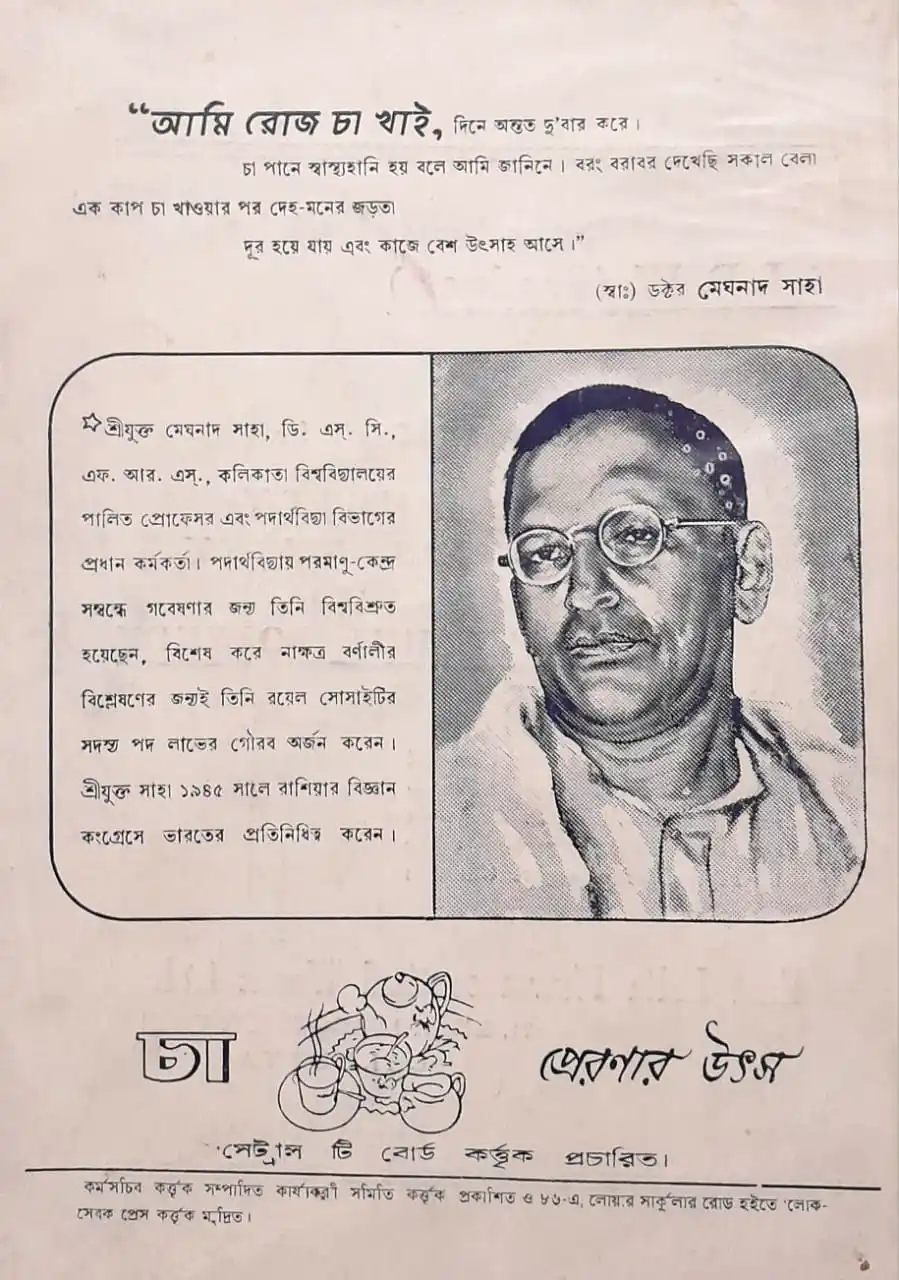 “আমি রোজ চা খাই, দিনে অন্তত দু’বার করে।
চা পানে স্বাস্থ্যহানি হয় বলে আমি জানিনে। বরং বরাবর দেখেছি সকাল বেলা
এক কাপ চা খাওয়ার পর দেহ-মনের জড়তা
দূর হয়ে যায় এবং কাজে বেশ উৎসাহ আসে।”
(স্বাঃ) ডক্টর মেঘনাদ সাহা
শ্রীযুক্ত মেঘনাদ সাহা, ডি. এস্. সি.,
এফ. আর. এস্., কলিকাতা বিশ্ববিদ্যালয়ের
পালিত প্রোফেসর এবং পদার্থবিদ্যা বিভাগের
প্রধান কর্মকর্তা। পদার্থবিদ্যায় পরমাণু-কেন্দ্র
সম্বন্ধে গবেষণার জন্য তিনি বিশ্ববিশ্রুত
হয়েছেন, বিশেষ করে নাক্ষত্র বর্ণালীর
বিশ্লেষণের জন্যই তিনি রয়েল সোসাইটির
সদস্য পদ লাভের গৌরব অর্জন করেন।
শ্রীযুক্ত সাহা ১৯৪৫ সালে রাশিয়ার বিজ্ঞান
কংগ্রেসে ভারতের প্রতিনিধিত্ব করেন।
চা প্রেরণার উৎস
সেন্ট্রাল টি বোর্ড কর্তৃক প্রচারিত।
কর্মসচিব কর্ত্তৃক সম্পাদিত কার্যাকরী সমিতি কর্ত্তৃক প্রকাশিত ও ৮৬-এ, লোয়ার সার্কুলার রোড হইতে ‘লোক-
সেবক প্রেস কর্ত্তৃক মুদ্রিত।